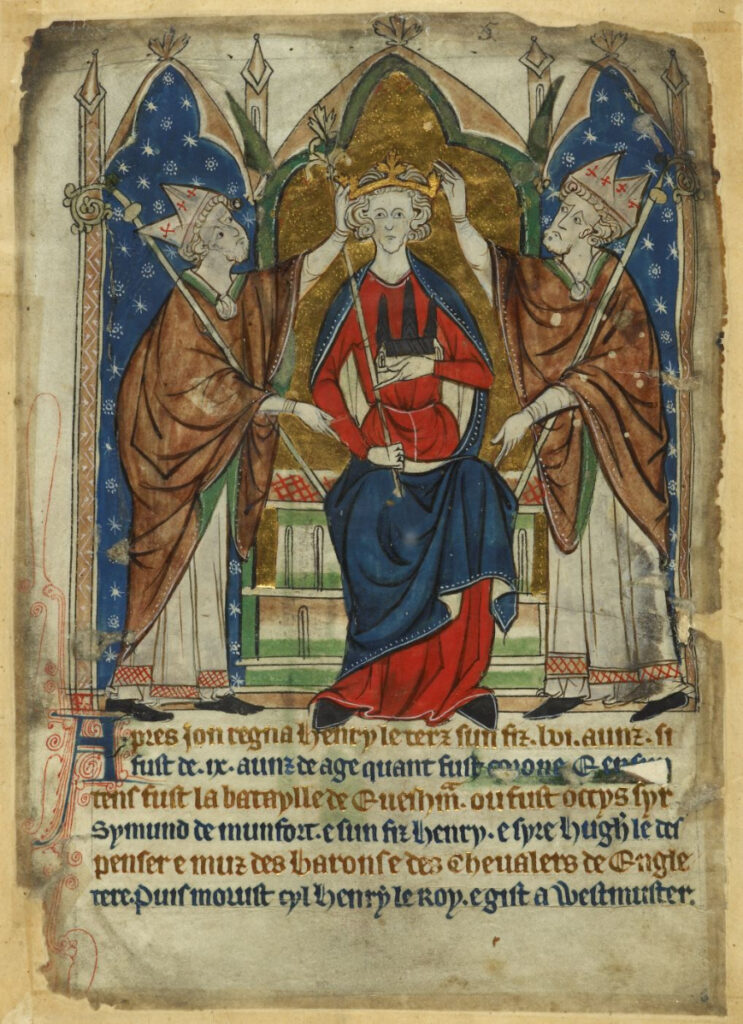 5
Apres Jon regna Henry le terz sun fiz · lvi · aunz · si
fust de · ix · aunz de age quant fust corone E en sun
tens fust la bataylle de Euesham̄ · ou fust occys syr
Symund de munfort · e sun fiz Henry · e syre Hugh̄ le des
penser e muz des barons e des Cheualers de Engle
tere · Puis morust cyl Henry le Roy · e gist a Westmuster ·